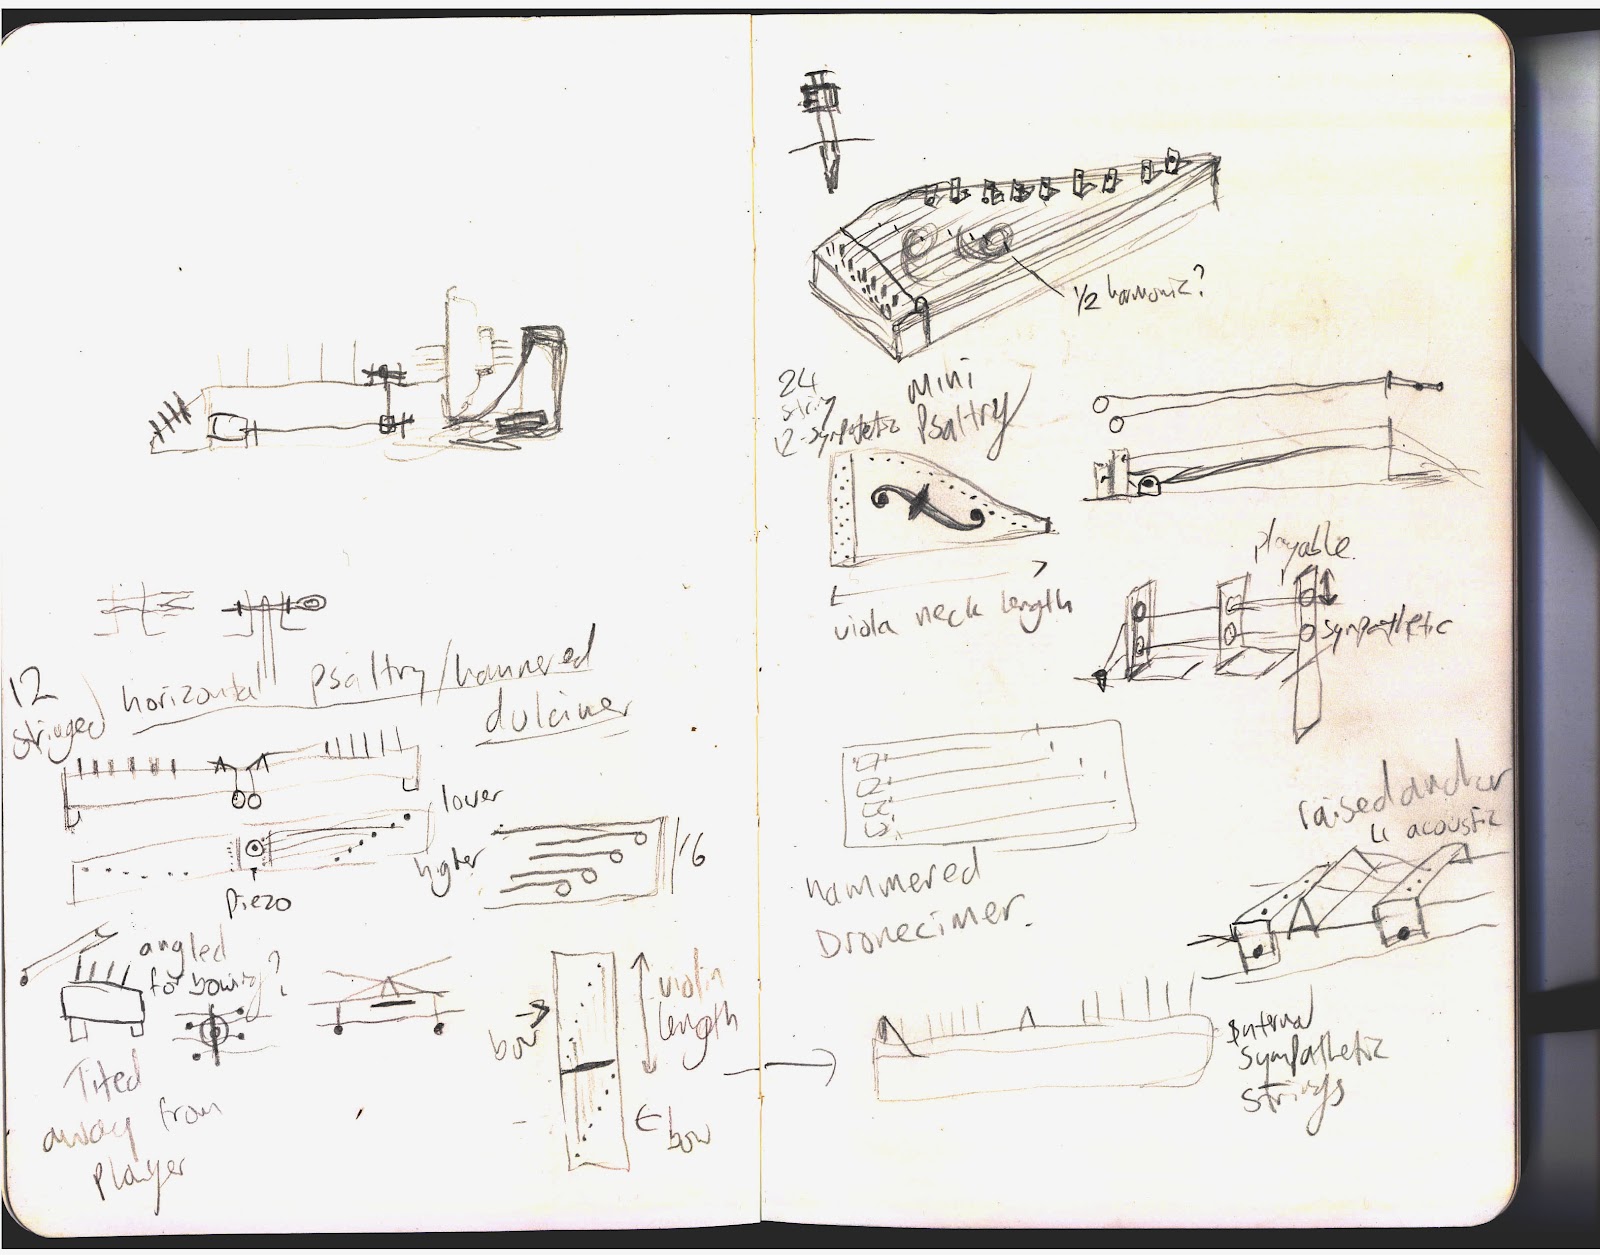 12
stringed
horizontal psaltry/hammered
dulcimer
lower
higher
Piezo
1/6
angled
for bowing?
Tilted
away from
player
bow
violin
length
bow
1/2 harmonic?
24
string
12-sympatetic
mini
Psaltry
viola neck length
playable
sympathetic
hammered
Dronecimer.
raised anchor
acoustic
internal
sympathetic
strings